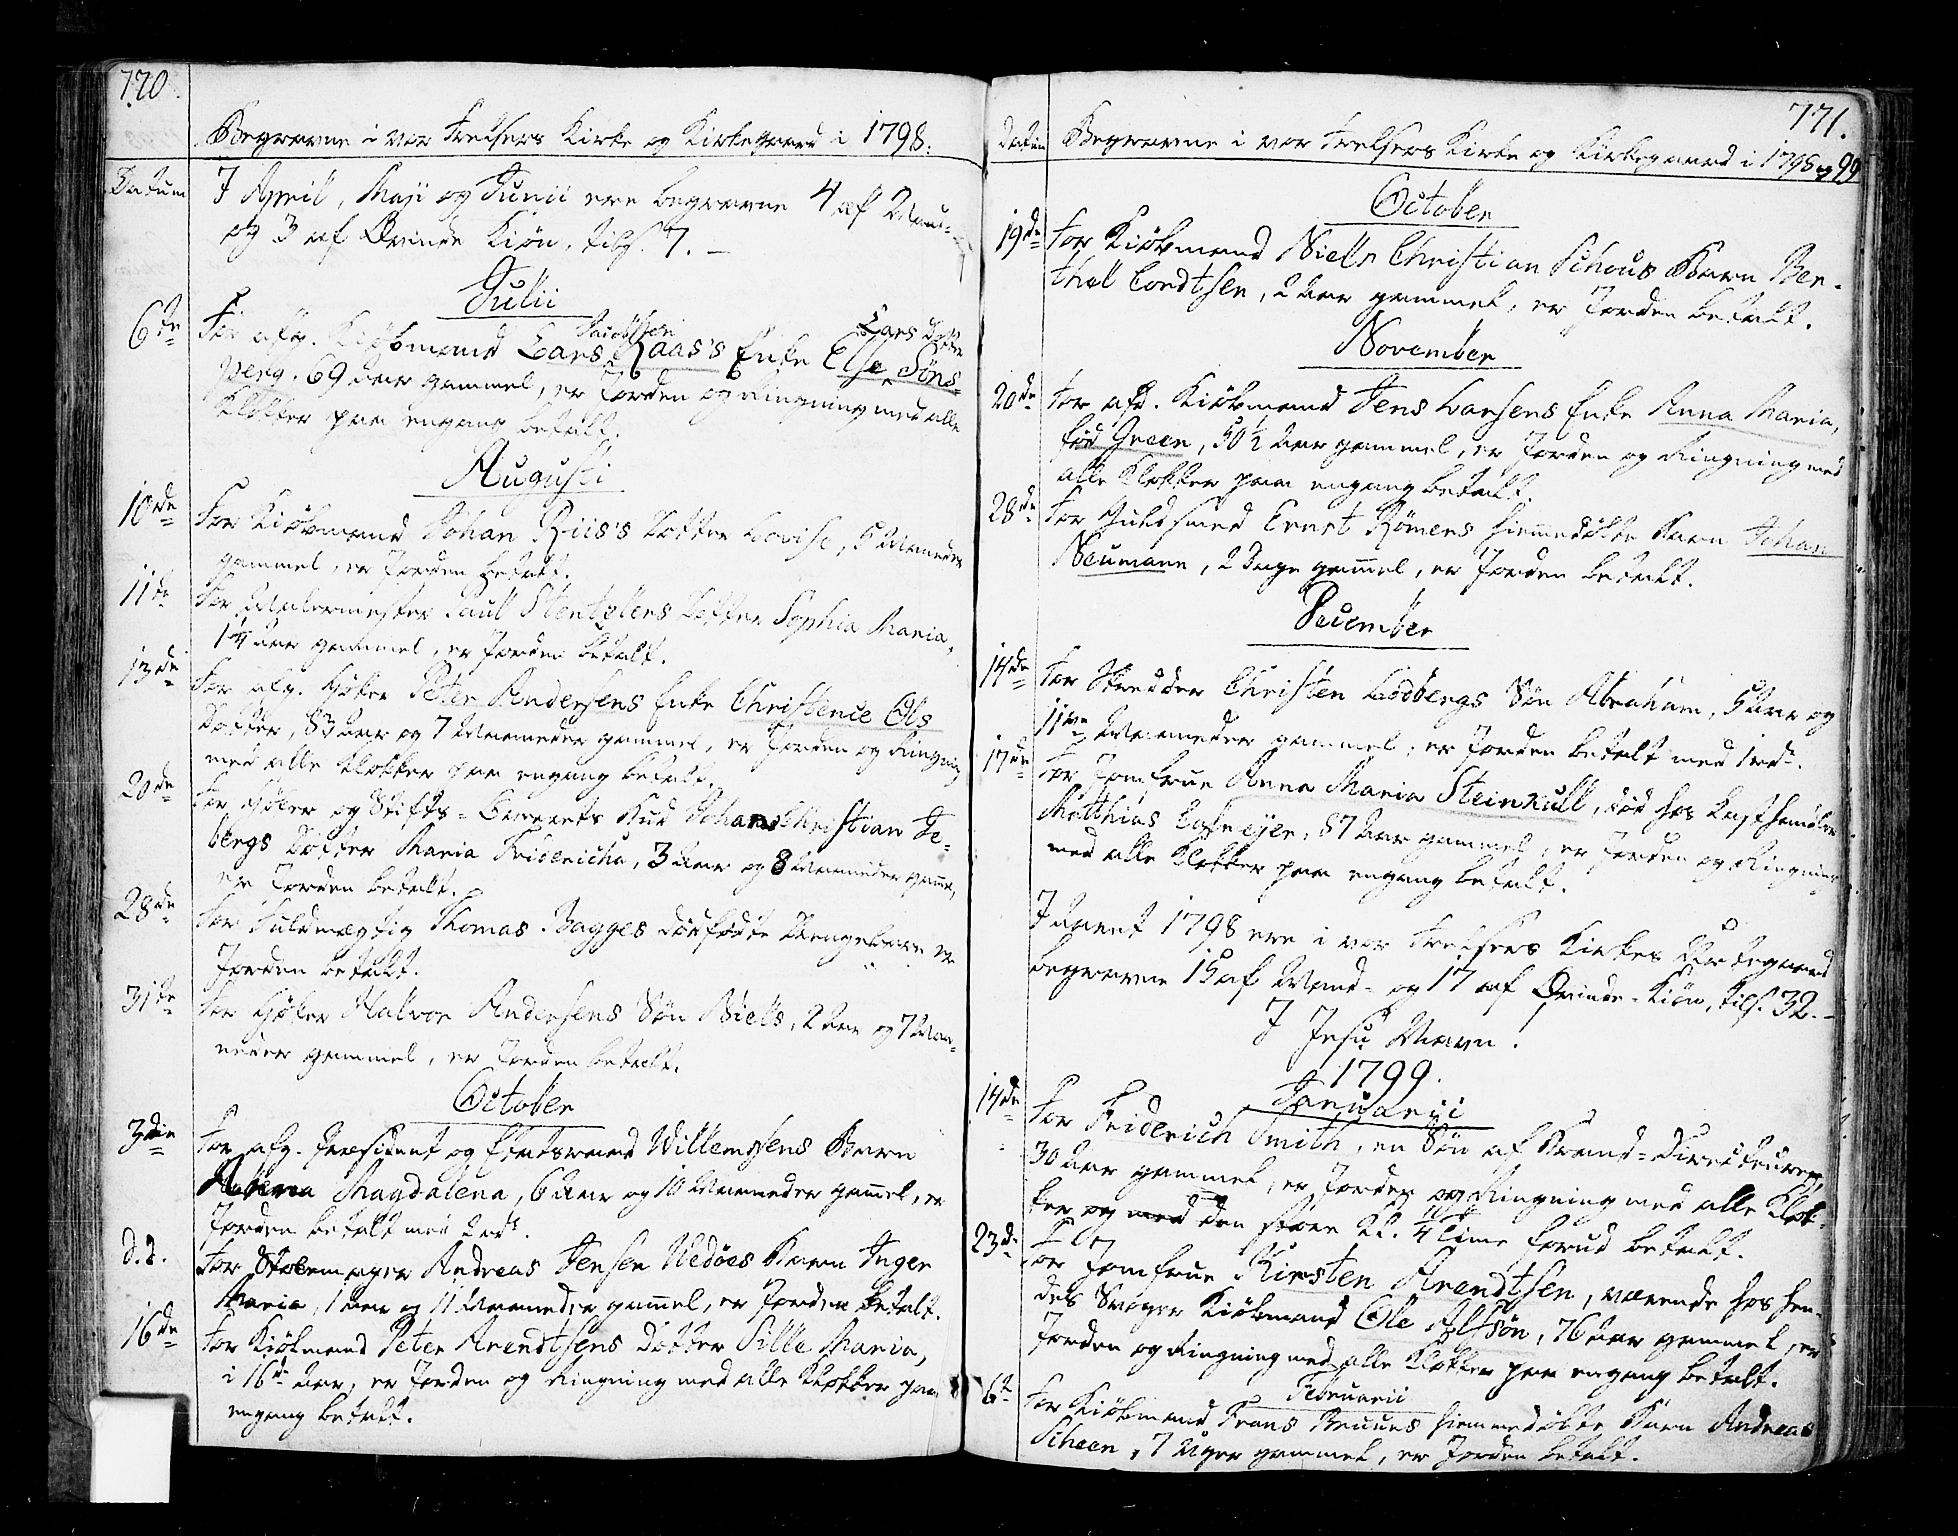 770.
Begravne i vor Frelsers Kirke og Kirkegaard i 1798.
Datum
I April, Maji og Junii ere begravne 4 af Mand-
og 3 af Qvinde Kiøn, tils. 7. —
Julii
6te For afg. Kiøbmand Lars Jacobsen Raas's Enke Else Lars Dotter Søns-
perg, 69 Aar gammel, er Jorden og Ringning med alle
Klokker paa engang betalt.
Augusti
10de For Kiøbmand Johan Riis's Dotter Lovise, 5 Maaneder
gammel, er Jorden betalt.
11te For Malermester Paull Stentzlers Dotter Sophia Maria,
14 Aar gammel, er Jorden betalt.
13de For afg. Høker Peter Andersens Enke Christence Ols
Dotter, 83 Aar og 7 Maaneder gammel, er Jorden og Ringning
med alle Klokker paa engang betalt.
20de For Høker og Stifts- Bud Johan Christian
bergs Dotter Maria Fridericha, 3 Aar og 8 Maaneder gaml,
er Jorden betalt.
28de For Fuldmægtig Thomas Bagges dødfødte Drengebarn er
Jorden betalt.
31te For Høker Halvor Andersens Søn Niels, 2 Aar og 7 Maa-
neder gammel, er Jorden betalt.
October
3die For afg. Præsident og Etatsraad Willemsens Barn
Magdalena, 6 Aar og 10 Maaneder gamel, er
Jorden betalt med 2 rds.
d. d. For Andreas Jensen Nedøes Barn Inger
Maria, 1 Aar og 11 Maaneder gamel, er Jorden betalt.
16de For Kiøbmand Peter Arendtsens Dotter Sille Maria,
i 16de Aar, er Jorden og Ringning med alle Klokker paa
engang betalt.
771.
Datum Begravne i vor Frelsers Kirke og Kirkegaard i 1798 og 99
October
19de For Kiøbmand Niels Christian Schous Barn Ber-
thel Cordtsen, 2 Aar gammel, er Jorden betalt.
November
20de For afd. Kiøbmand Jens Larsens Enke Anna Maria,
fød Green, 50½ Aar gammel, er Jorden og Ringning med
alle Klokker paa engang betalt.
28de For Guldsmed Ernst Römers hiemmedøbte Barn Johan
Neumann, 2 Dage gamel, er Jorden betalt.
December
14de For Skrædder Christen Lodbergs Søn Abraham, 5 Aar og
11ve Maaneder gammel, er Jorden betalt med 1 rd.
17de For Jomfrue Anna Maria Steinkull, død hos Lysthandler
Matthias, 87 Aar gammel, er Jorden og Ringning
med alle Klokker paa engang betalt.
I Aaret 1798 ere i vor Frelsers Kirkes Urtegaard
begravne 15 af Mand- og 17 af Qvinde-Kiøn, tils. 32. —
I Jesu Navn!
1799.
Januarii
14de For Friderich Smith, en Søn af Brand-Directeuren,
30 Aar gammel, er Jorden og Ringning med alle Klok-
ker og med den store Kl. ¼ Time forud betalt.
23de For Jomfrue Kirsten Arendtsen, værende hos hen-
des Svoger Kiøbmand Ole Alfsøn, 76 Aar gammel, er
Jorden og Ringning med alle Klokker paa engang betalt.
Februarii
6te For Kiøbmand Frans Bruuns hiemmedøbte Barn Andreas
Scheen, 7 Uger gammel, er Jorden betalt.